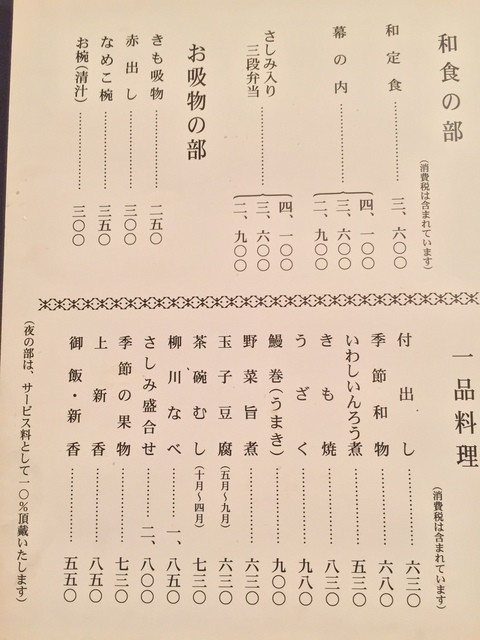 和食の部
(消費税は含まれています)
和定食 三、六〇〇
幕の内 四、一〇〇
三、六〇〇
二、九〇〇
さしみ入り
三段弁当 四、一〇〇
三、六〇〇
二、九〇〇
お吸物の部
きも吸物 二五〇
赤出し 三〇〇
なめこ椀 三五〇
お椀(清汁) 三〇〇
一品料理
(消費税は含まれています)
付出し 六三〇
季節和物 六八〇
いわしいんろう煮 五三〇
きも焼 八三〇
うざく 九八〇
鰻巻(うまき) 九〇〇
野菜旨煮 六三〇
玉子豆腐(五月〜九月) 六三〇
茶碗むし(十月〜四月) 七三〇
柳川なべ 一、八五〇
さしみ盛合せ 二、八〇〇
季節の果物 七三〇
上新香 八五〇
御飯・新香 五五〇
(夜の部は、サービス料として一〇%頂戴いたします)